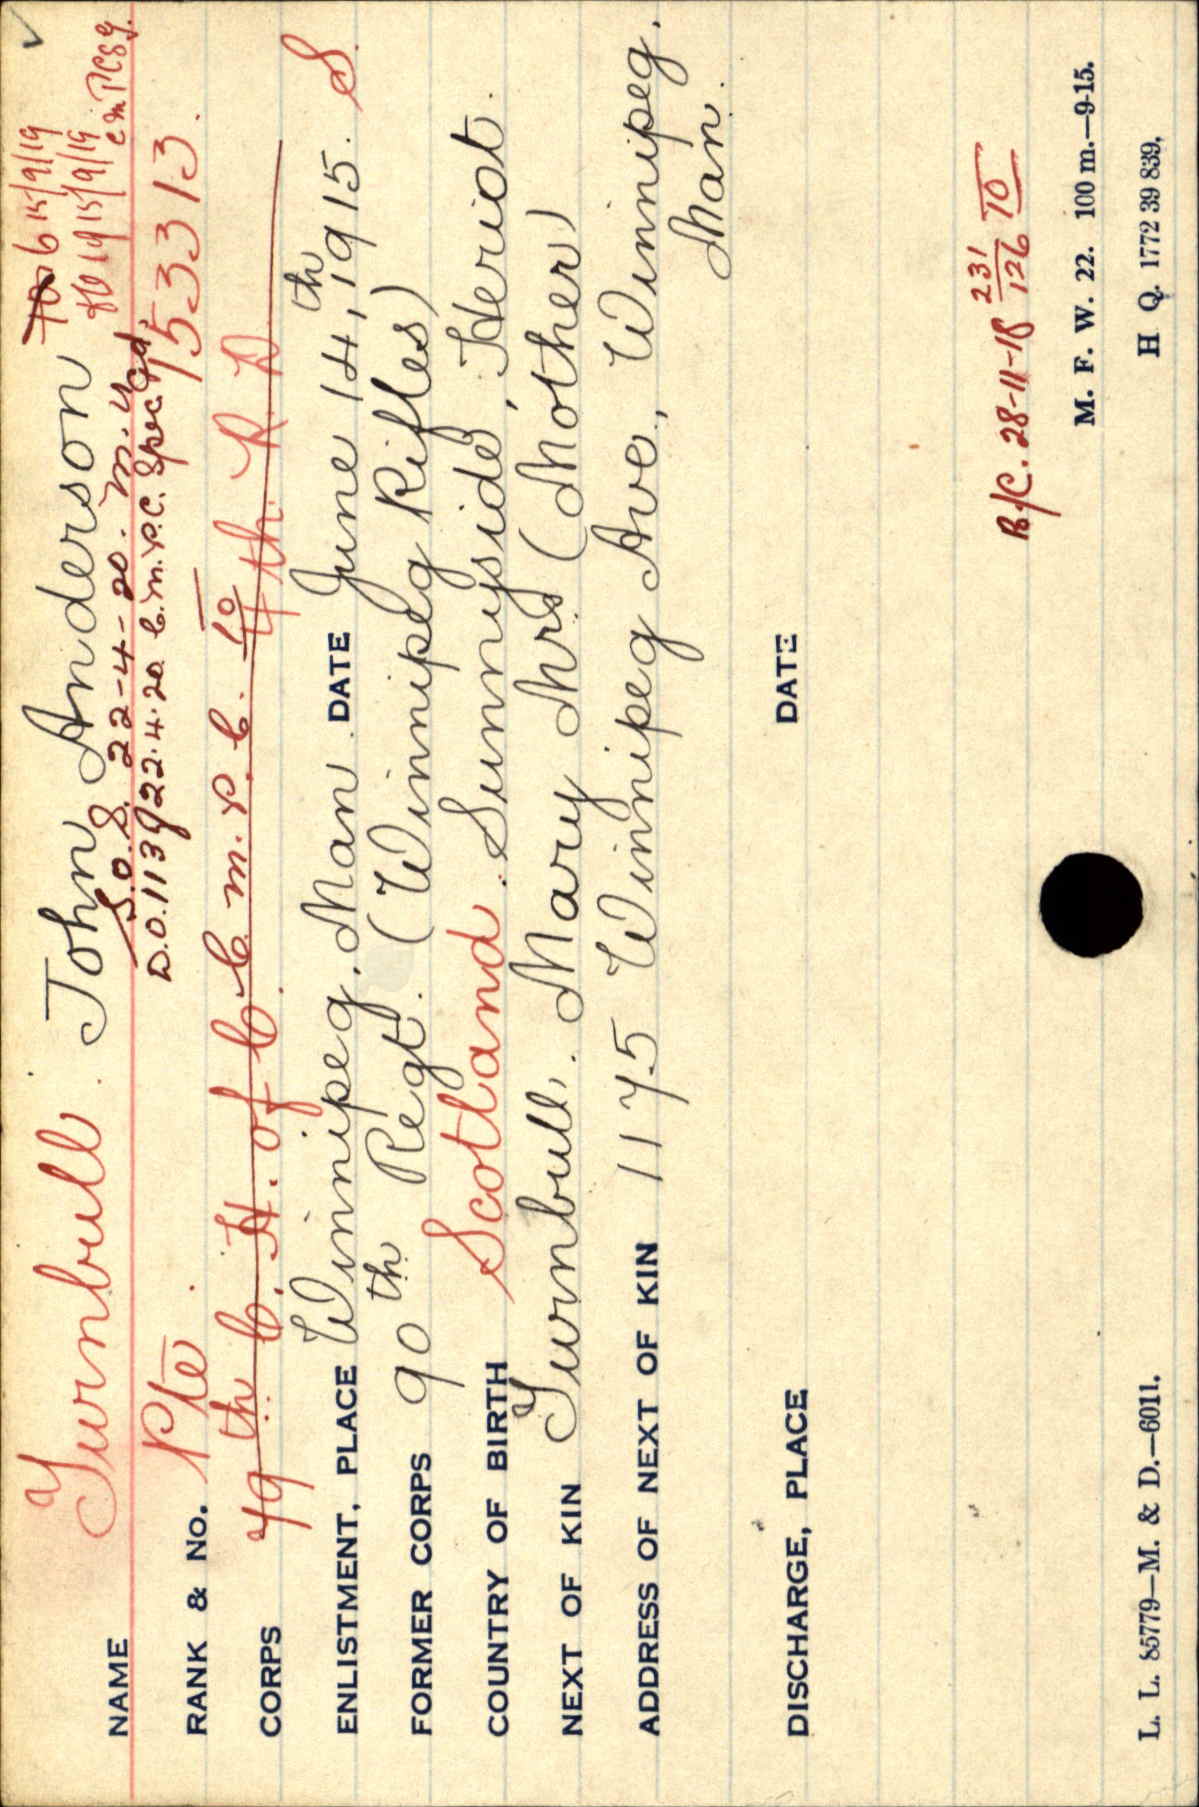 NAME Turnbull. John Anderson
6 15/9/19
19 15/9/19
S.O.S. 22-4-20. M.D.
D.O. 113 22.4.20 C.M.P.C. Spec
RANK & No. Pte. 153313.
CORPS 79th C. H. of C. C. M. P. C. 10 4th R D
ENLISTMENT, PLACE Winnipeg. Man. DATE June 14th, 1915. S.
FORMER CORPS 90th Regt. (Winnipeg Rifles)
COUNTRY OF BIRTH Scotland. Sunnyside, Heriot.
NEXT OF KIN Turnbull. Mary Mrs. (Mother)
ADDRESS OF NEXT OF KIN 1175 Winnipeg Ave., Winnipeg.
Man.
DISCHARGE, PLACE DATE
R/C. 28-11-18 231/126 10
M. F. W. 22. 100 m.—9-15.
L. L. 85779—M. & D.—6011. H Q. 1772 39 839.